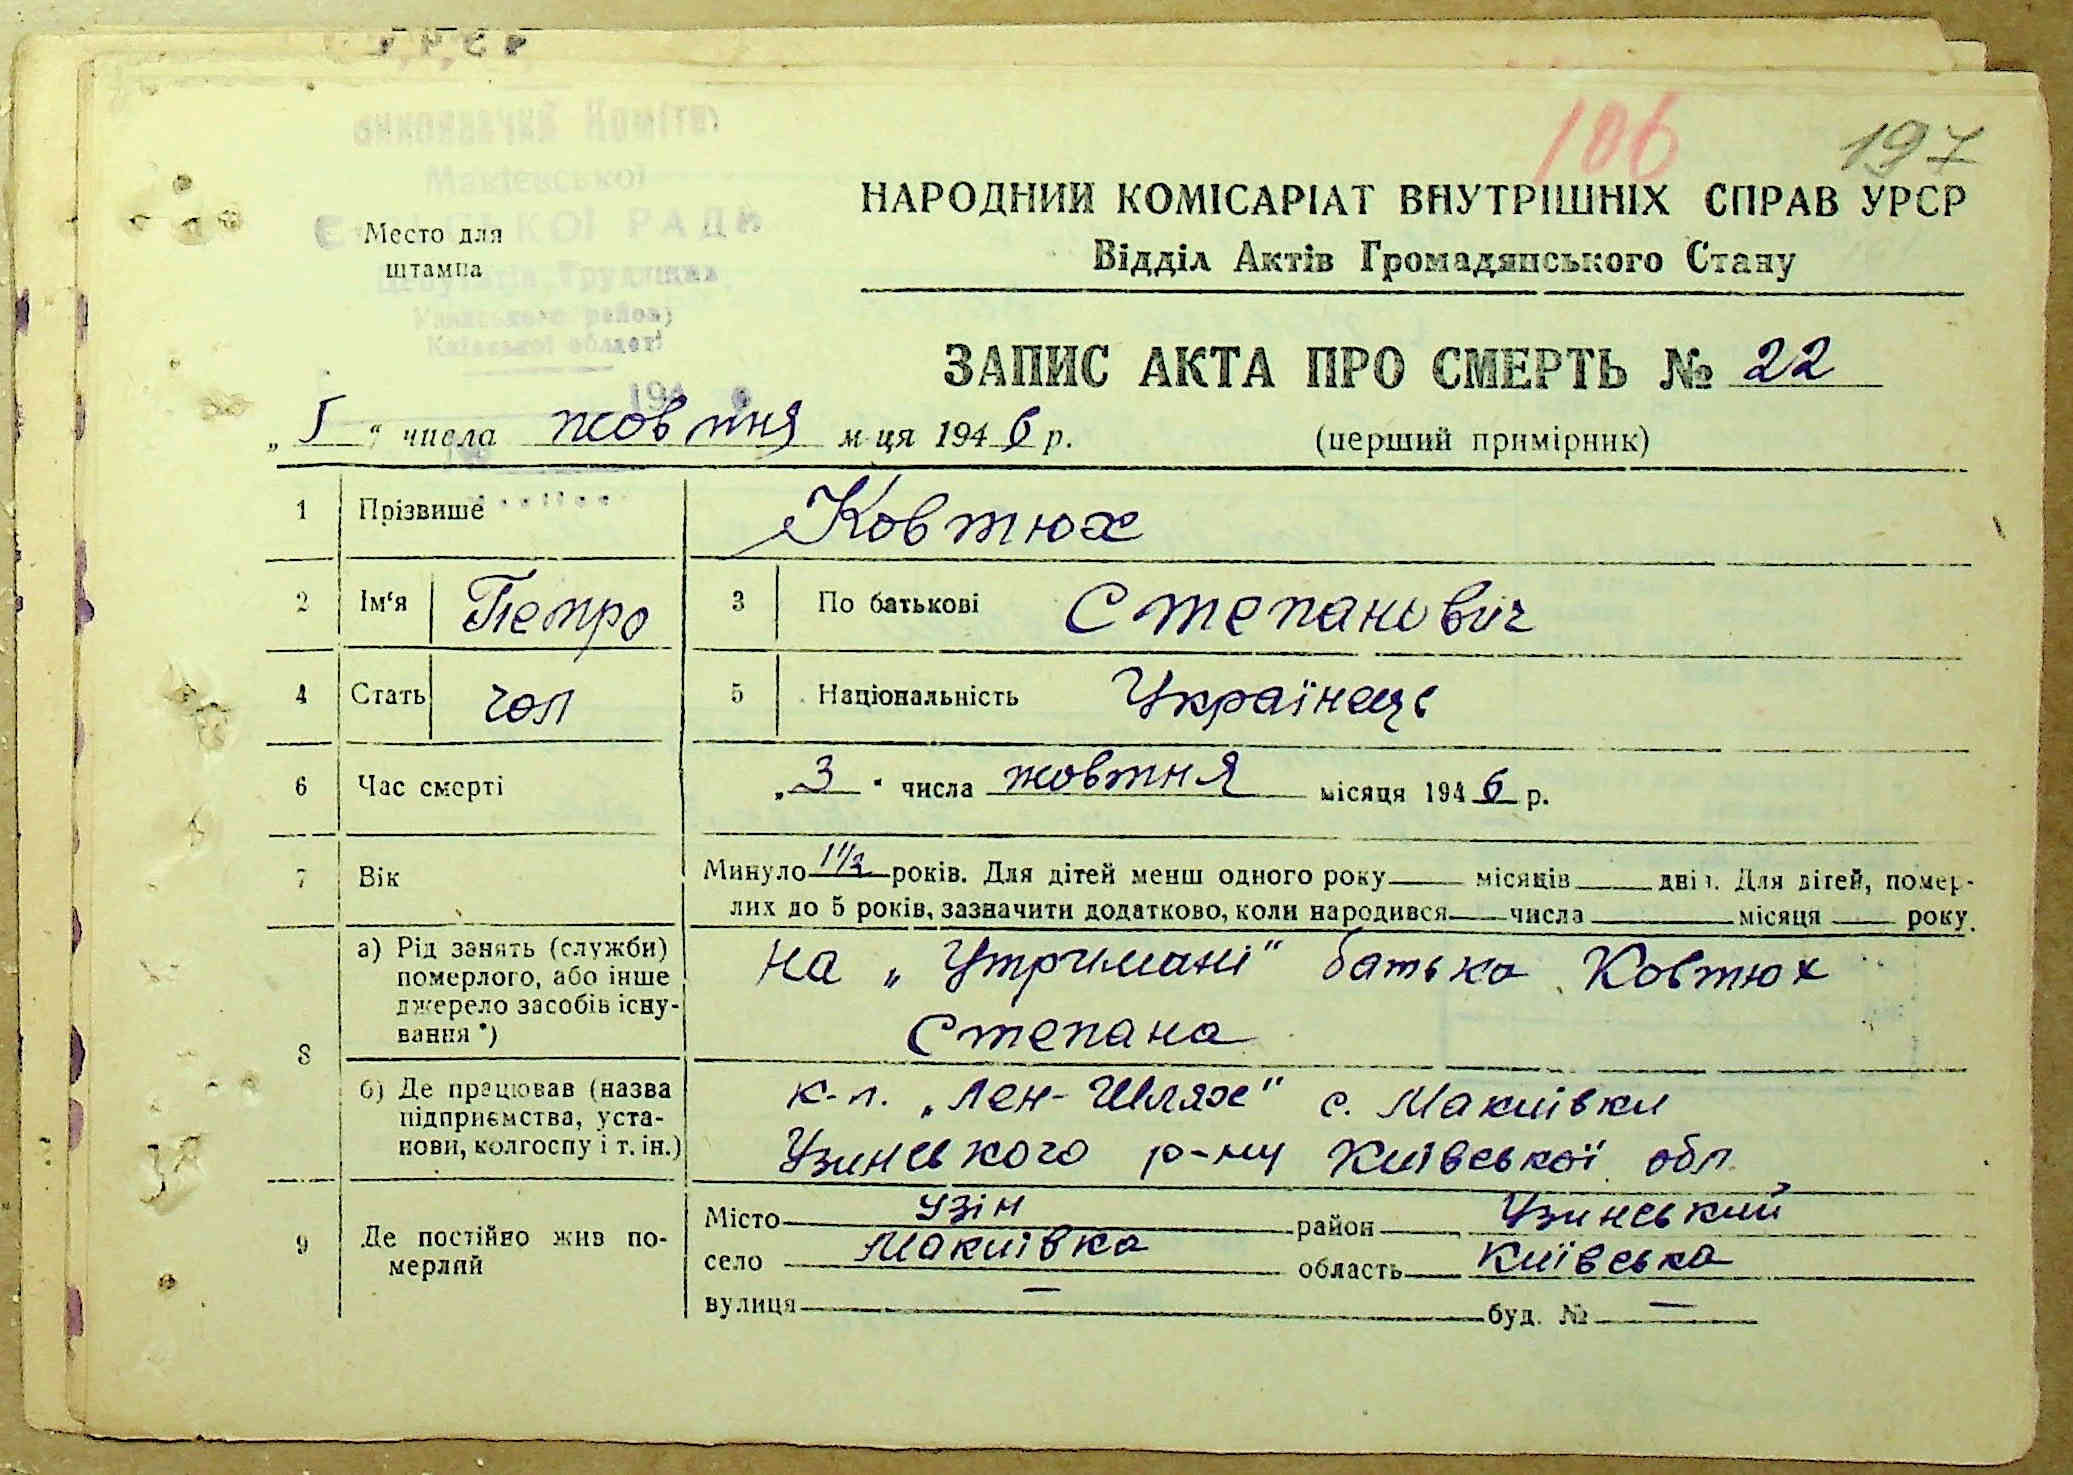 106 197
Виконавчий Комітет
Макіевської
СІЛЬСЬКОЇ РАДИ
Депутатів Трудящих
Узинського району
Київської області
194
Место для
штампа
НАРОДНИЙ КОМІСАРІАТ ВНУТРІШНІХ СПРАВ УРСР
Відділ Актів Громадянського Стану
ЗАПИС АКТА ПРО СМЕРТЬ № 22
„ 5 “ числа жовтня м-ця 1946 р. (перший примірник)
1 Прізвише Ковтюх
2 Ім‘я Петро 3 По батькові Степанович
4 Стать чол 5 Національність Українець
6 Час смерті „3“ числа жовтня місяця 1946 р.
7 Вік Минуло 1 1/2 років. Для дітей менш одного року місяців днів. Для дітей, помер-
лих до 5 років, зазначити додатково, коли народився числа місяця року.
8 а) Рід занять (служби)
померлого, або інше
джерело засобів існу-
вання *)
на „Утримані“ батька Ковтюх
Степана
б) Де працював (назва
підприємства, уста-
нови, колгоспу і т. ін.)
к-п. „Лен-Шлях“ с. Макиївки
Узинського р-ну Київської обл
9 Де постійно жив по-
мерлий
Місто Узін район Узинський
село Макиївка область Київська
вулиця — буд. № —